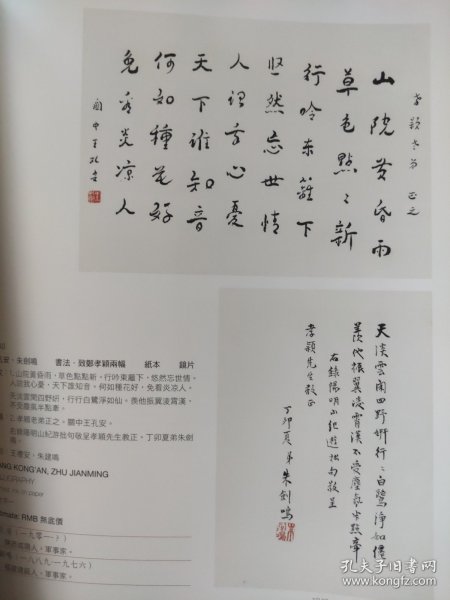 孝穎老弟正之
山院黃昏雨
草色點點新
行吟東籬下
悠然忘世情
人謂方心憂
天下誰知音
何如種花好
免看炎凉人
關中王孔安
天淡雲閑四野妍行行白鷺淨如僊
羨他振翼凌霄漢不受塵氛半點牽
右錄陽明山紀遊拙句敬呈
孝穎先生教正
丁卯夏弟朱劍鳴
孔安、朱劍鳴 書法·致鄭孝穎兩幀 紙本 鏡片
山院黃昏雨，草色點點新，行吟東籬下，悠然忘世情，
人謂我心憂，天下誰知音，何如種花好，免看炎凉人。
天淡雲閑四野妍，行行白鷺淨如仙。羨他振翼凌霄漢，
不受塵氛半點牽。
孝穎老弟正之，關中王孔安。
右錄陽明山紀游拙句敬呈孝穎先生教正，丁卯夏弟朱劍
鳴。
ANG KONG'AN, ZHU JIANMING
LLIGRAPHY
RMB 無底價
（一九〇一-）
軍事家。
（一八八九-一九七六）
軍事家。
孔夫子旧书网